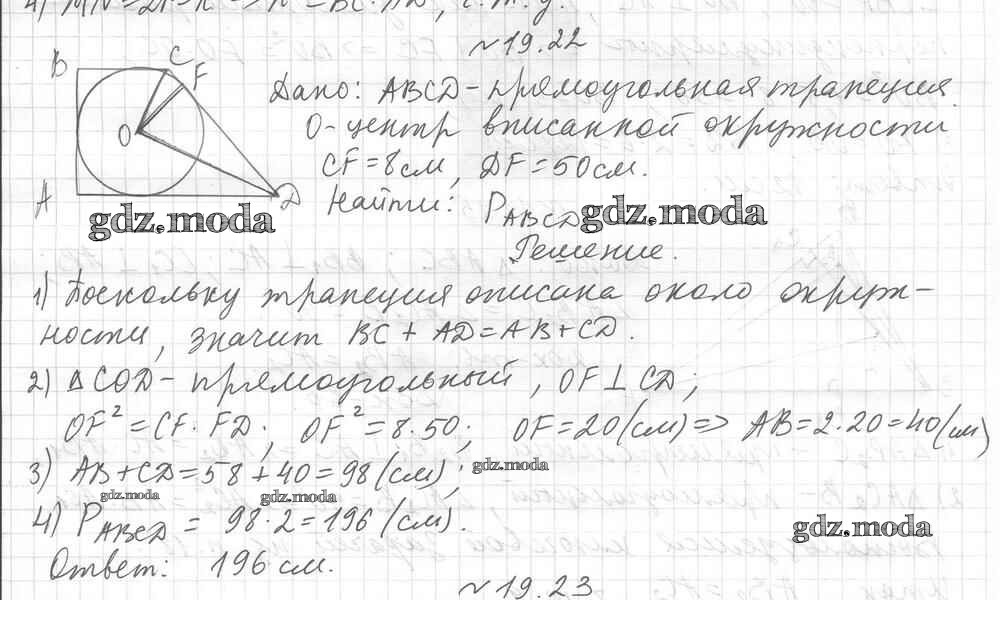 4) MN=2r=h => h²=BC·AD, ч.т.д.
~19.22
B C F
O
A D
Дано: ABCD - прямоугольная трапеция.
O - центр вписанной окружности
CF=8см, DF=50см.
Найти: P_ABCD
gdz.moda gdz.moda
Решение.
1) Поскольку трапеция описана около окруж-
ности, значит BC + AD = AB + CD.
2) △COD - прямоугольный, OF⊥CD;
OF²=CF·FD; OF²=8·50; OF=20(см)=> AB=2·20=40(см)
3) AB+CD=58+40=98(см);
gdz.moda
gdz.moda gdz.moda
4) P_ABCD = 98·2=196(см).
gdz.moda
Ответ: 196 см.
~19.23